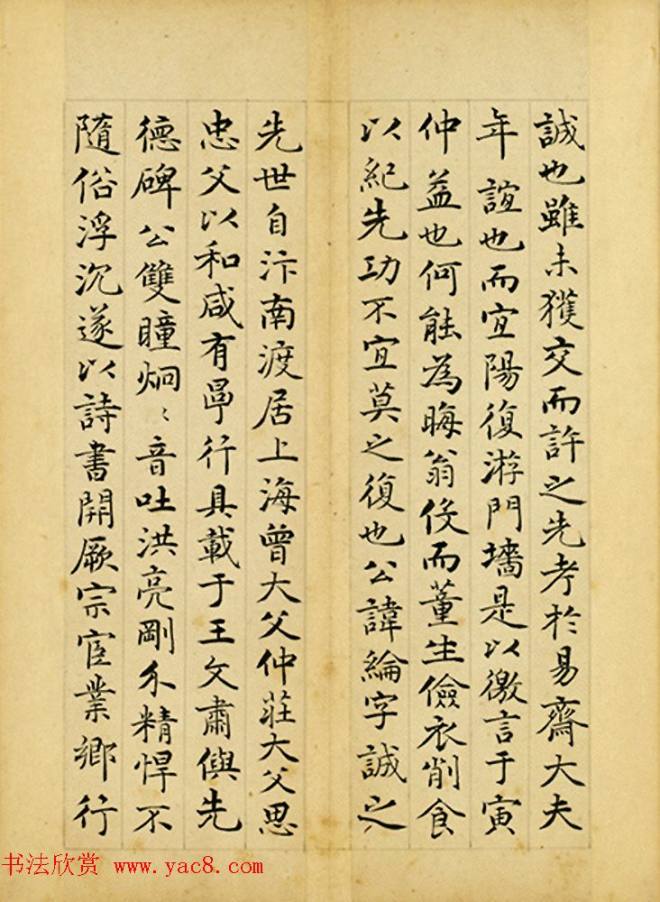 誠也雖未獲交而許之先考於易齋大夫
年誼也而宜陽復游門墻是以徼言于寅
仲益也何能為晦翁役而董生儉衣削食
以紀先功不宜莫之復也公諱綸字誠之
先世自汴南渡居上海曾大父仲莊大父思
忠父以和咸有㝵行具載于王文肅與先
德碑公雙瞳炯〻音吐洪亮剛介精悍不
隨俗浮沉遂以詩書開厥宗宦業鄉行
书法欣赏 www.yac8.com